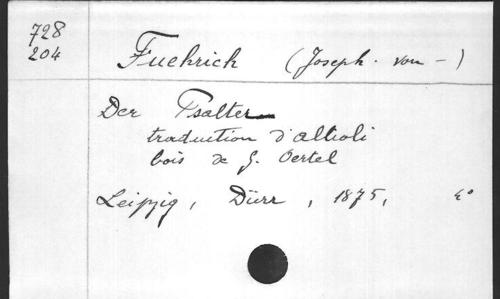 728
204
Fuehrich (Joseph. von -)
Der Psalter
traduction d'allioli
bois de G. Oertel
Leipzig, Dürr, 1875, 4°